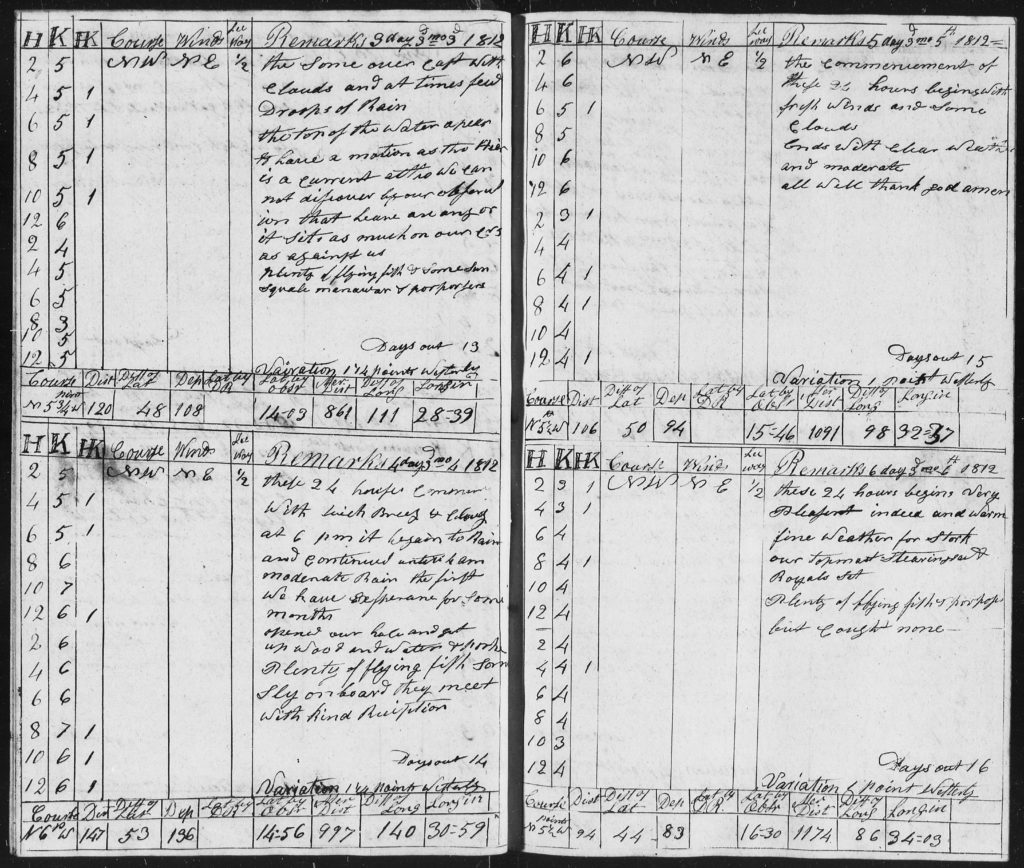 H K HK Course Winds Lee way Remarks 3 day 3d mo 3d 1812
2 5 NW NE 1/2 the Some over Cast with
4 5 1 Clouds and at times few
Drops of Rain
6 5 1 the ton of the Water apeer
8 5 1 to have a motion as tho theer
is a Current altho we Can
10 5 1 not discover by our observat
12 6 ion that heave an any or
2 4 it Sits as much on our
4 5 as against us
Plenty of flying fish & Some Sun
6 5 Squale manawar & porporsers
8 3
10 5 Days out 13
12 5 Variation 1 1/4 points Westerly
Course Dist Diff of Lat Dep Lat by DR Lat by Obsr Mer Dist Diff of Long Long in
N 5 3/4 W points 120 48 108 14=03 861 111 28=39
H K HK Course Winds Lee way Remarks 4 day 3d mo 4 1812
2 5 NW NE 1/2 these 24 hours Commenc
4 5 1 With Brees & Cloudy
6 5 1 at 6 pm it began to Rain
8 6 and Continued until 4 am
10 7 moderate Rain the first
We have for Some
12 6 1 months
2 6 opened our hole and got
up Wood and Water & porke
4 6 Plenty of flying fish Som
6 6 Fly on board they meet
With Kind Reception
8 7 1
10 6 1 Days out 14
12 6 1 Variation 1 1/4 point Westerly
Course Dist Diff of Lat Dep Lat by DR Lat by Obsr Mer Dist Diff of Long Long in
N 6 W 147 53 136 14=56 997 140 30=59
H K HK Course Winds Lee way Remarks 5 day 3d mo 5th 1812=
2 6 NW NE 1/2 the Commencement of
4 6 these 24 hours begins with
6 5 1 fresh Winds and Some
8 5 Clouds
10 6 Ends with Clear Weather
and moderate
12 6 all Well thank god amen
2 3 1
4 4
6 4 1
8 4 1
10 4
12 4 1 Days out 15
Variation 1 point Westerly
Course Dist Diff of Lat Dep Lat by DR Lat by Obsr Mer Dist Diff of Long Long in
N 5 1/2 W 106 50 94 15=46 1091 98 32=37
H K HK Course Winds Lee way Remarks 6 day 3d mo 6th 1812
2 3 1 NW NE 1/2 these 24 hours begins Very
4 3 1 Plesent indeed and Warm
6 4 fine Weather for Stork
8 4 1 our topmast Stearing Sail &
10 4 Royals Set
12 4 Plenty of flying fish & porpos
but Cought none
2 4
4 4 1
6 4
8 4
10 3
12 4 Days out 16
Variation 1 point Westerly
Course Dist Diff of Lat Dep Lat by DR Lat by Obsr Mer Dist Diff of Long Long in
N 5 1/2 W points 94 44 83 16=30 1174 86 34=03